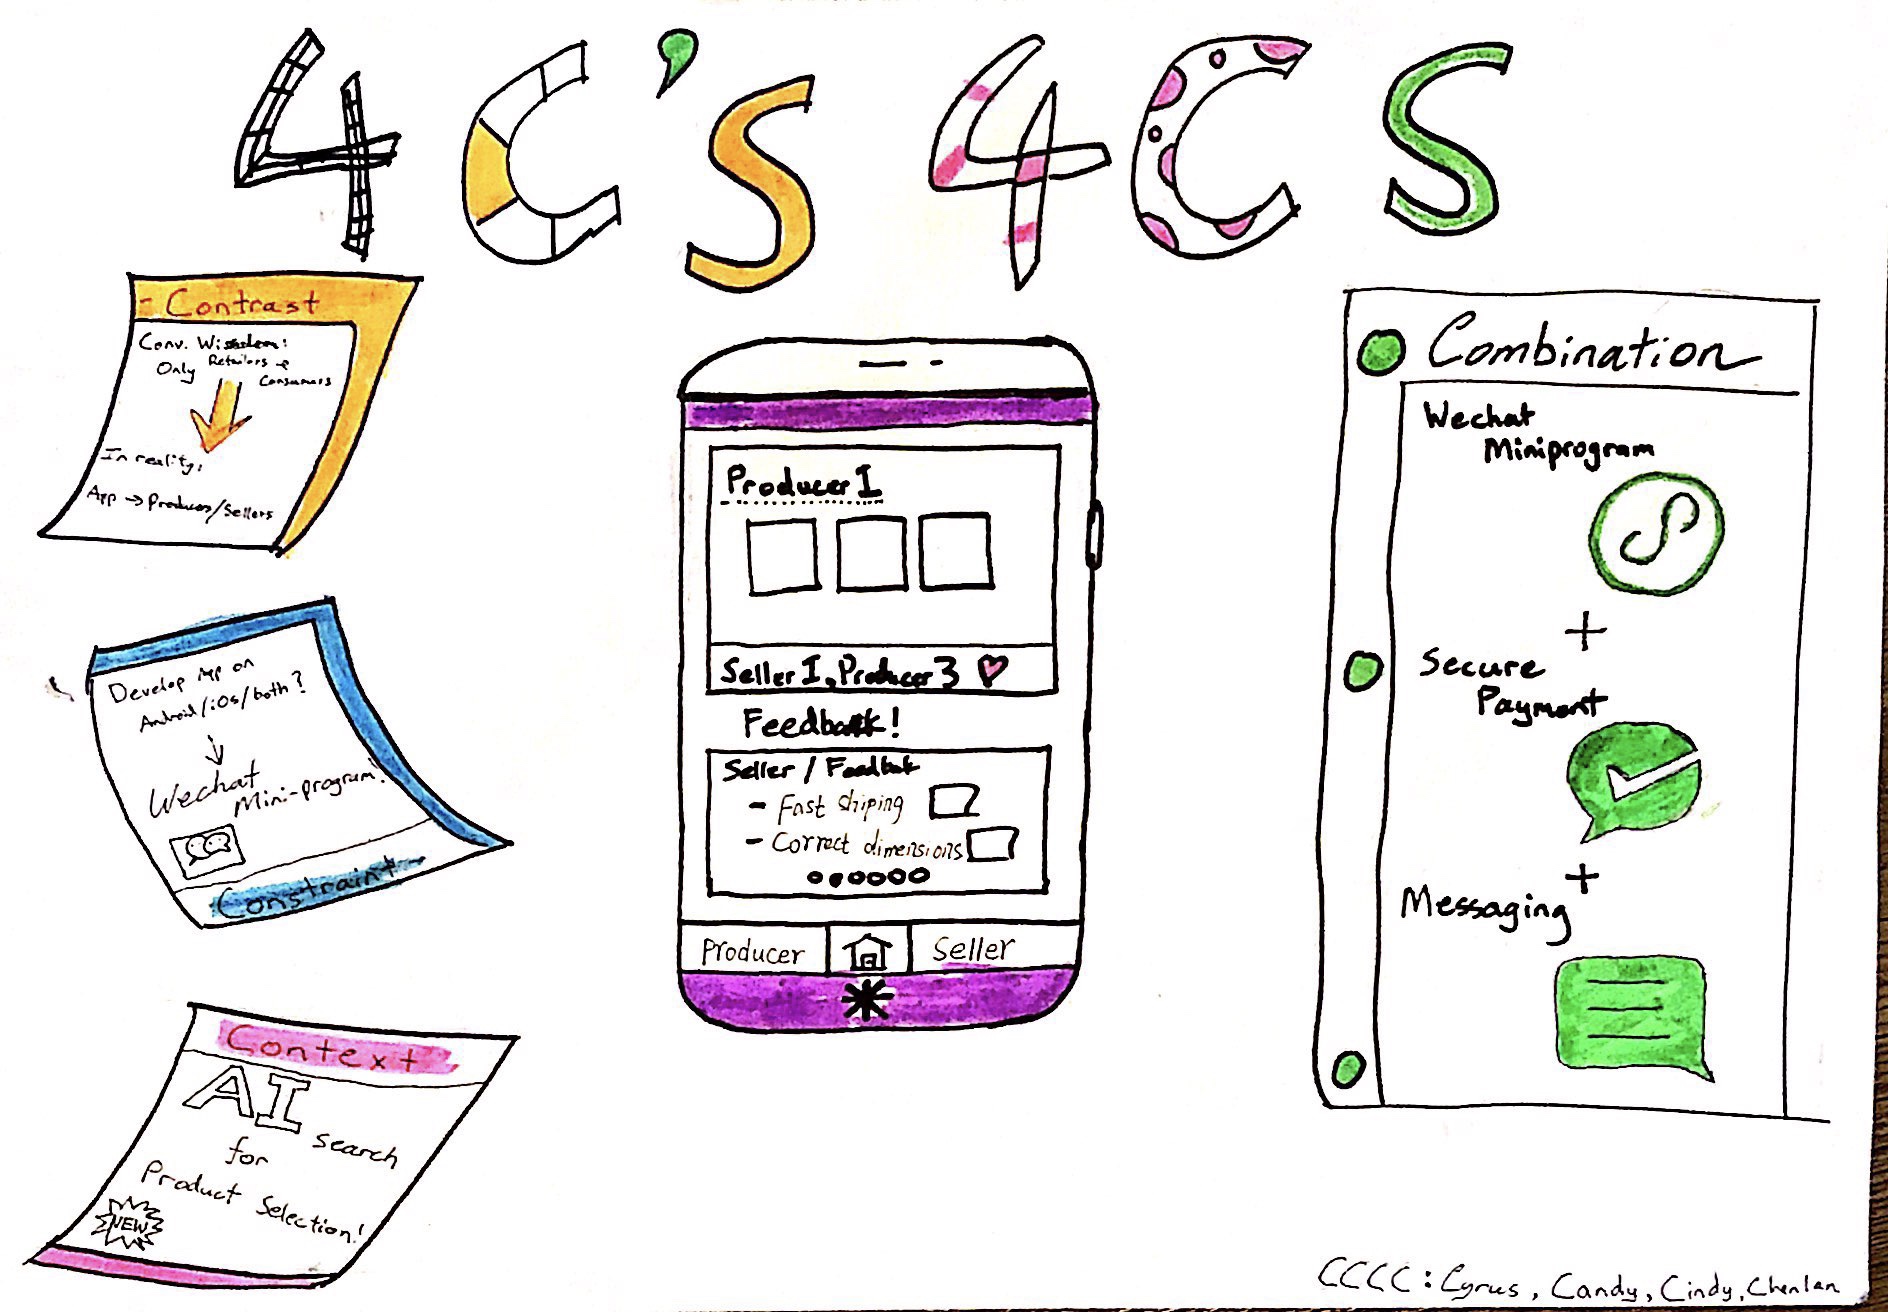 4C's 4CS
- Contrast
Conv. Wisdom:
Only Retailers &
Consumers
In reality:
App → Producers/Sellers
Develop App on
Android/iOs/both?
↓
Wechat
Mini-program!
Constraint
Context
AI search
for
Product Selection!
NEW
Producer I
Seller I, Producer 3
Feedback!
Seller / Feedbak
- Fast shiping
- Correct dimensions
Producer
Seller
Combination
Wechat
Miniprogram
+
Secure
Payment
+
Messaging
CCCC: Cyrus, Candy, Cindy, Chenlan